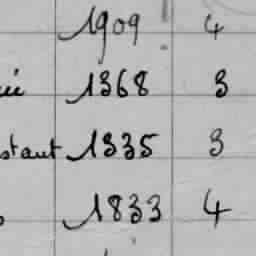 1909 4
1868 3
stant 1835 3
1833 4